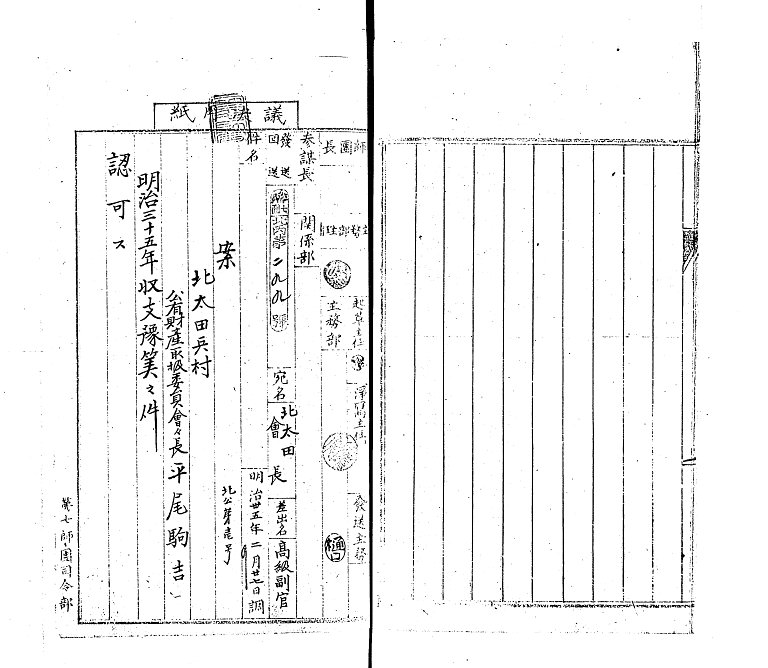 議決用紙
師團長
參謀長
關係部
主務部
起草主任
淨寫主任
發送主務
發送
回送
二九九號
宛名
北太田
會長
差出名
高級副官
件名
明治卅五年二月廿七日調
北公第壱号
案
北太田兵村
公有財產取扱委員會々長平尾駒吉
明治三十五年収支豫算之件
認可ス
第七師團司令部
樋口